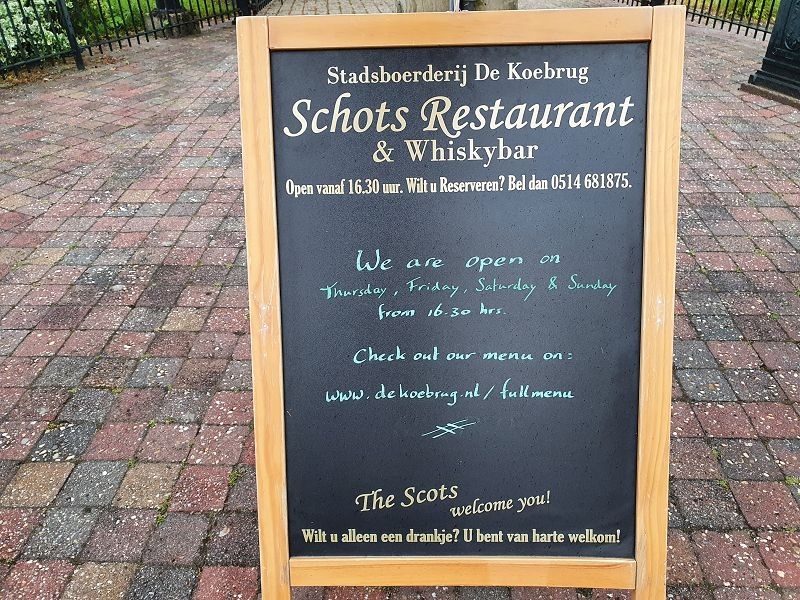 Stadsboerderij De Koebrug
Schots Restaurant
& Whiskybar
Open vanaf 16.30 uur. Wilt u Reserveren? Bel dan 0514 681875.
We are open on
Thursday, Friday, Saturday & Sunday
from 16.30 hrs.
Check out our menu on:
www.dekoebrug.nl/fullmenu
The Scots
welcome you!
Wilt u alleen een drankje? U bent van harte welkom!